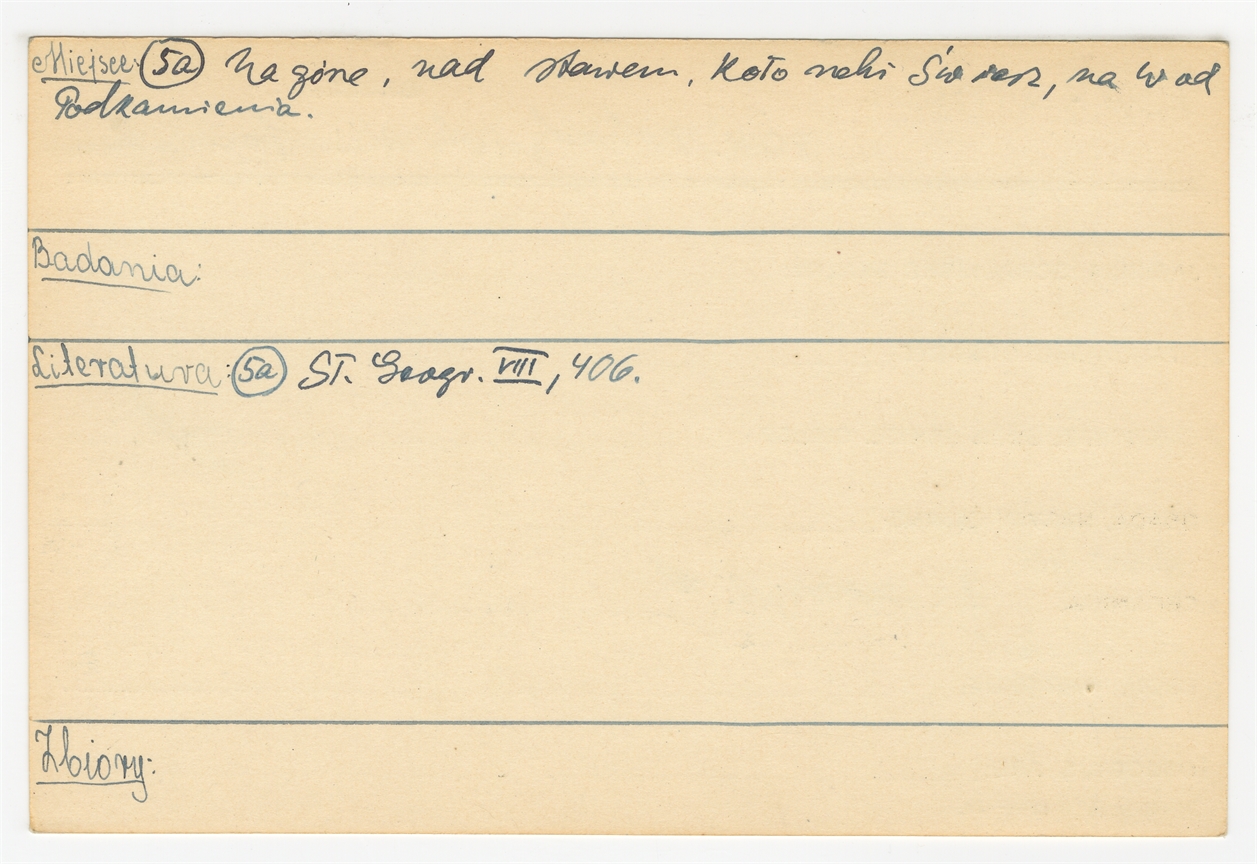 Miejsce: 5a Na górze, nad stawem, koło rzeki Świrz, na W od
Podkamienia.
Badania:
Literatura: 5a Sł. Geogr. VIII, 406.
Zbiory: